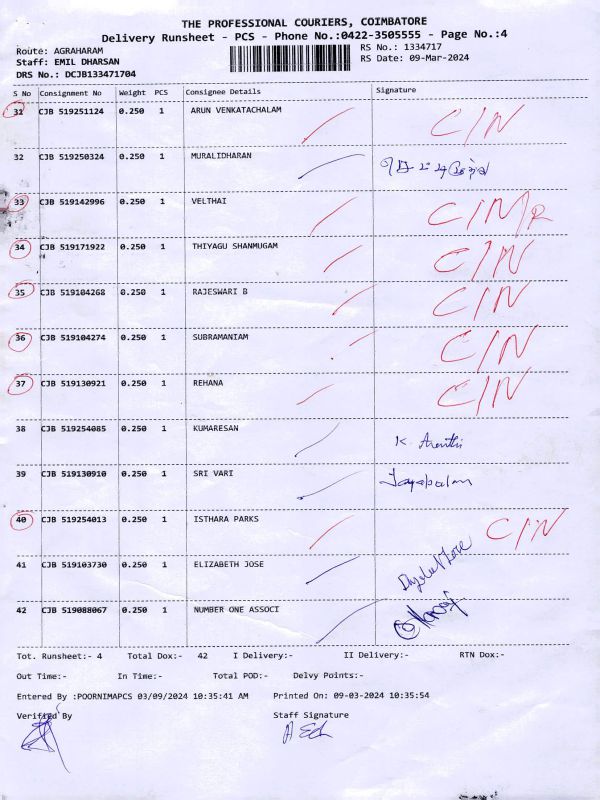 THE PROFESSIONAL COURIERS, COIMBATORE
Delivery Runsheet - PCS - Phone No.:0422-3505555 - Page No.:4
Route: AGRAHARAM
RS No.: 1334717
Staff: EMIL DHARSAN
RS Date: 09-Mar-2024
DRS No.: DCJB133471704
S No Consignment No Weight PCS Consignee Details Signature
31 CJB 519251124 0.250 1 ARUN VENKATACHALAM C/N
32 CJB 519250324 0.250 1 MURALIDHARAN
33 CJB 519142996 0.250 1 VELTHAI C/N/R
34 CJB 519171922 0.250 1 THIYAGU SHANMUGAM C/N
35 CJB 519104268 0.250 1 RAJESWARI B C/N
36 CJB 519104274 0.250 1 SUBRAMANIAM C/N
37 CJB 519130921 0.250 1 REHANA C/N
38 CJB 519254085 0.250 1 KUMARESAN K. Arenthi
39 CJB 519130910 0.250 1 SRI VARI Jayabalan
40 CJB 519254013 0.250 1 ISTHARA PARKS C/N
41 CJB 519103730 0.250 1 ELIZABETH JOSE
42 CJB 519088067 0.250 1 NUMBER ONE ASSOCI
Tot. Runsheet:- 4 Total Dox:- 42 I Delivery:- II Delivery:- RTN Dox:-
Out Time:- In Time:- Total POD:- Delvy Points:-
Entered By :POORNIMAPCS 03/09/2024 10:35:41 AM Printed On: 09-03-2024 10:35:54
Verified By Staff Signature